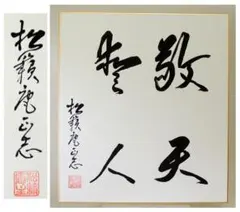 松籟庵正志
敬天
愛人
松籟庵正志